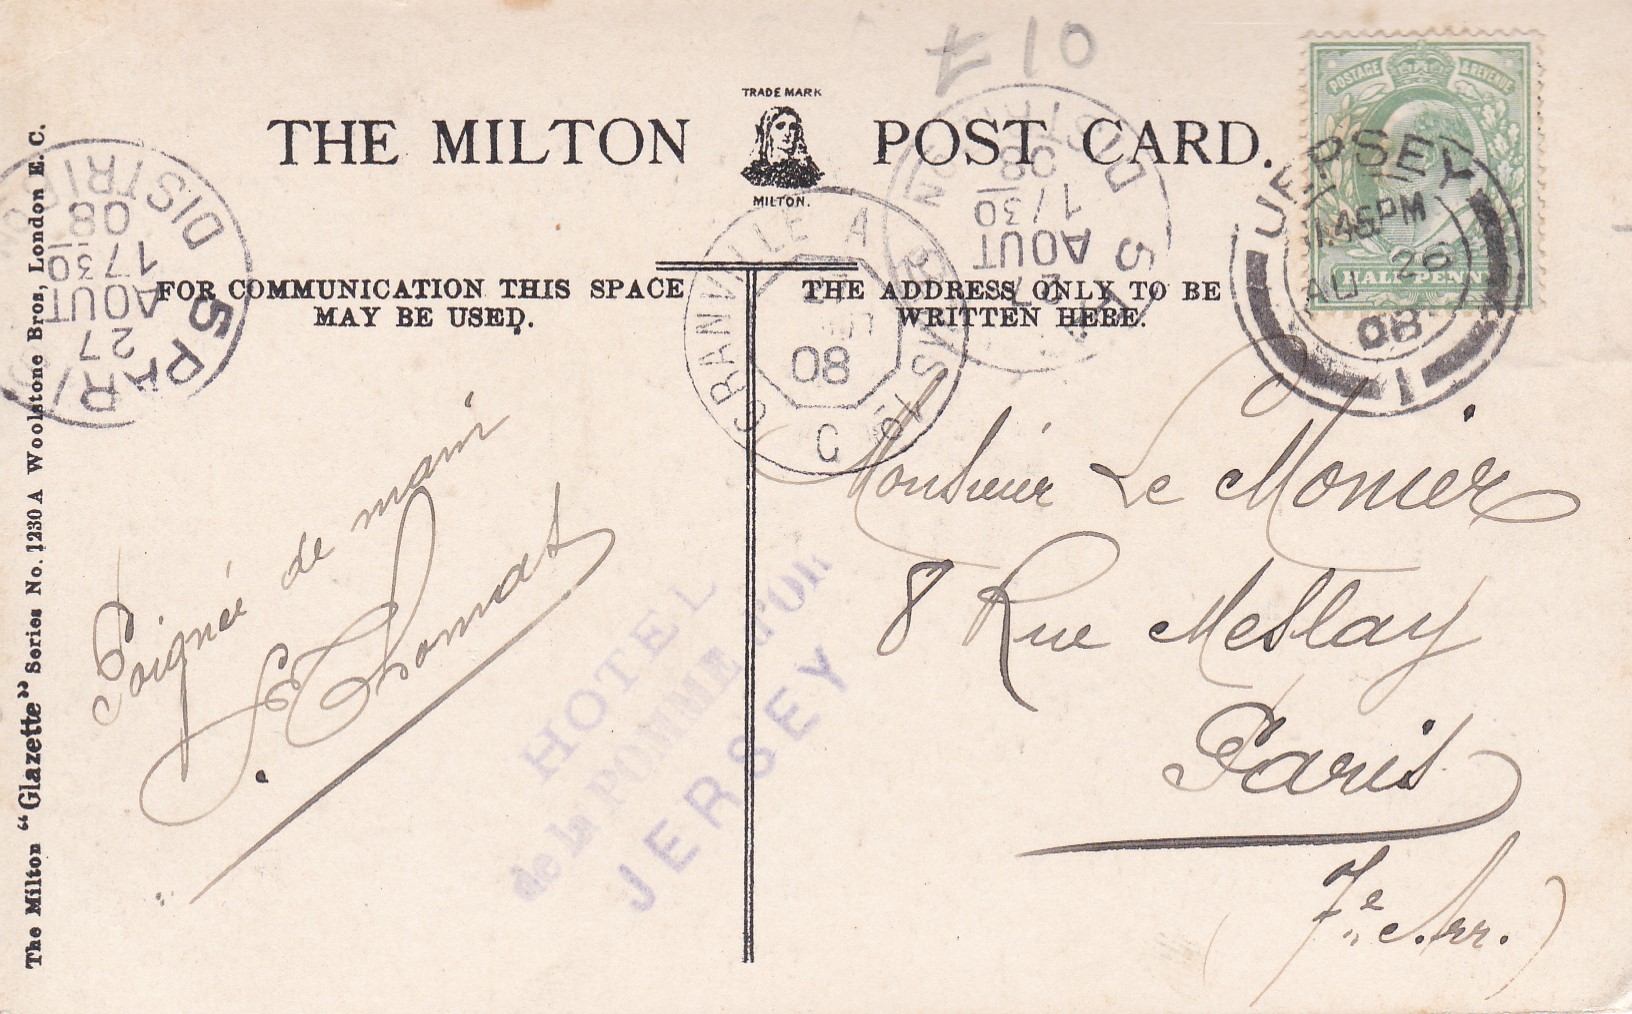 £10
TRADE MARK
THE MILTON POST CARD.
MILTON.
FOR COMMUNICATION THIS SPACE
MAY BE USED.
THE ADDRESS ONLY TO BE
WRITTEN HERE.
POSTAGE & REVENUE
HALFPENNY
JERSEY
1.45PM
AU 26
08
1
GRANVILLE A
08
PARIS
DISTRIB
27
AOUT
17 30
08
PARIS
DISTRIB
AOUT
17 30
08
Poignée de main
Thomas
HOTEL
de la POMME d'OR
JERSEY
Monsieur Le Monier
8 Rue Meslay
Paris
(7e Arr.)
The Milton "Glazette" Series No. 1230 A Woolstone Bros, London E. C.